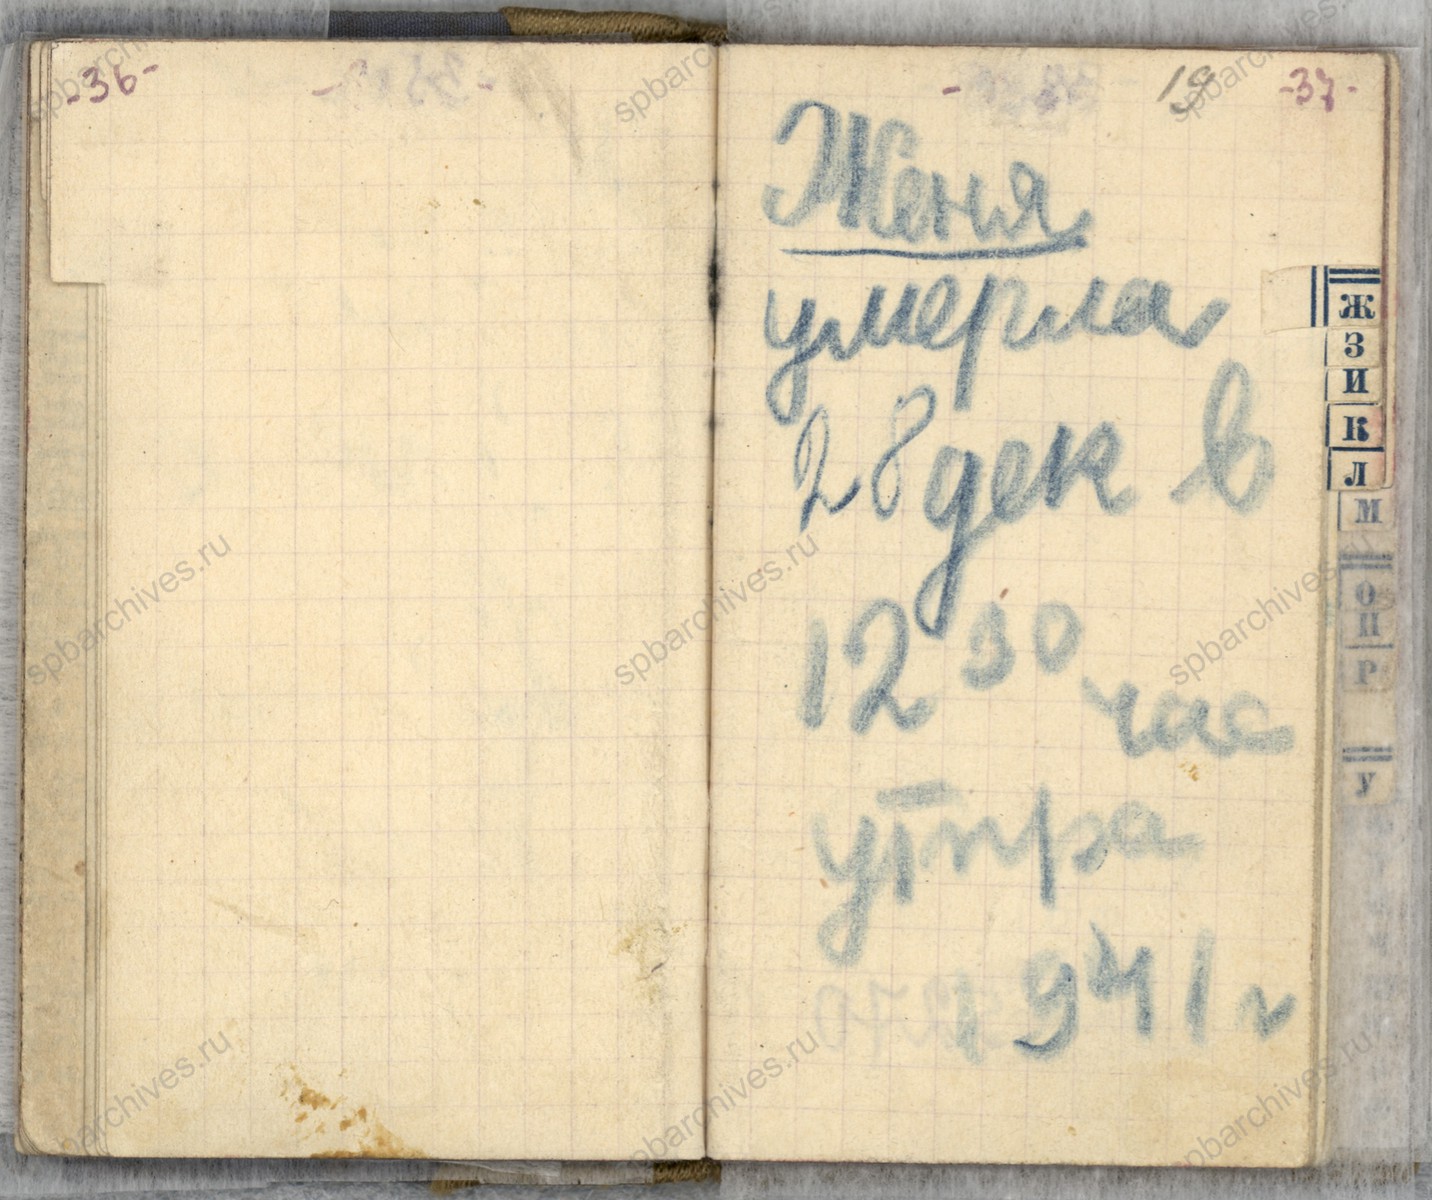 -36-
19 -37-
Женя
умерла
28 дек в
12 30 час
утра
1941 г
Ж
З
И
К
Л
М
О
П
Р
У
spbarchives.ru